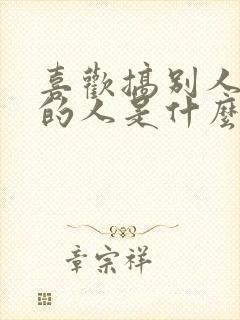 喜歡搞別人
的人是什麼
章宗祥